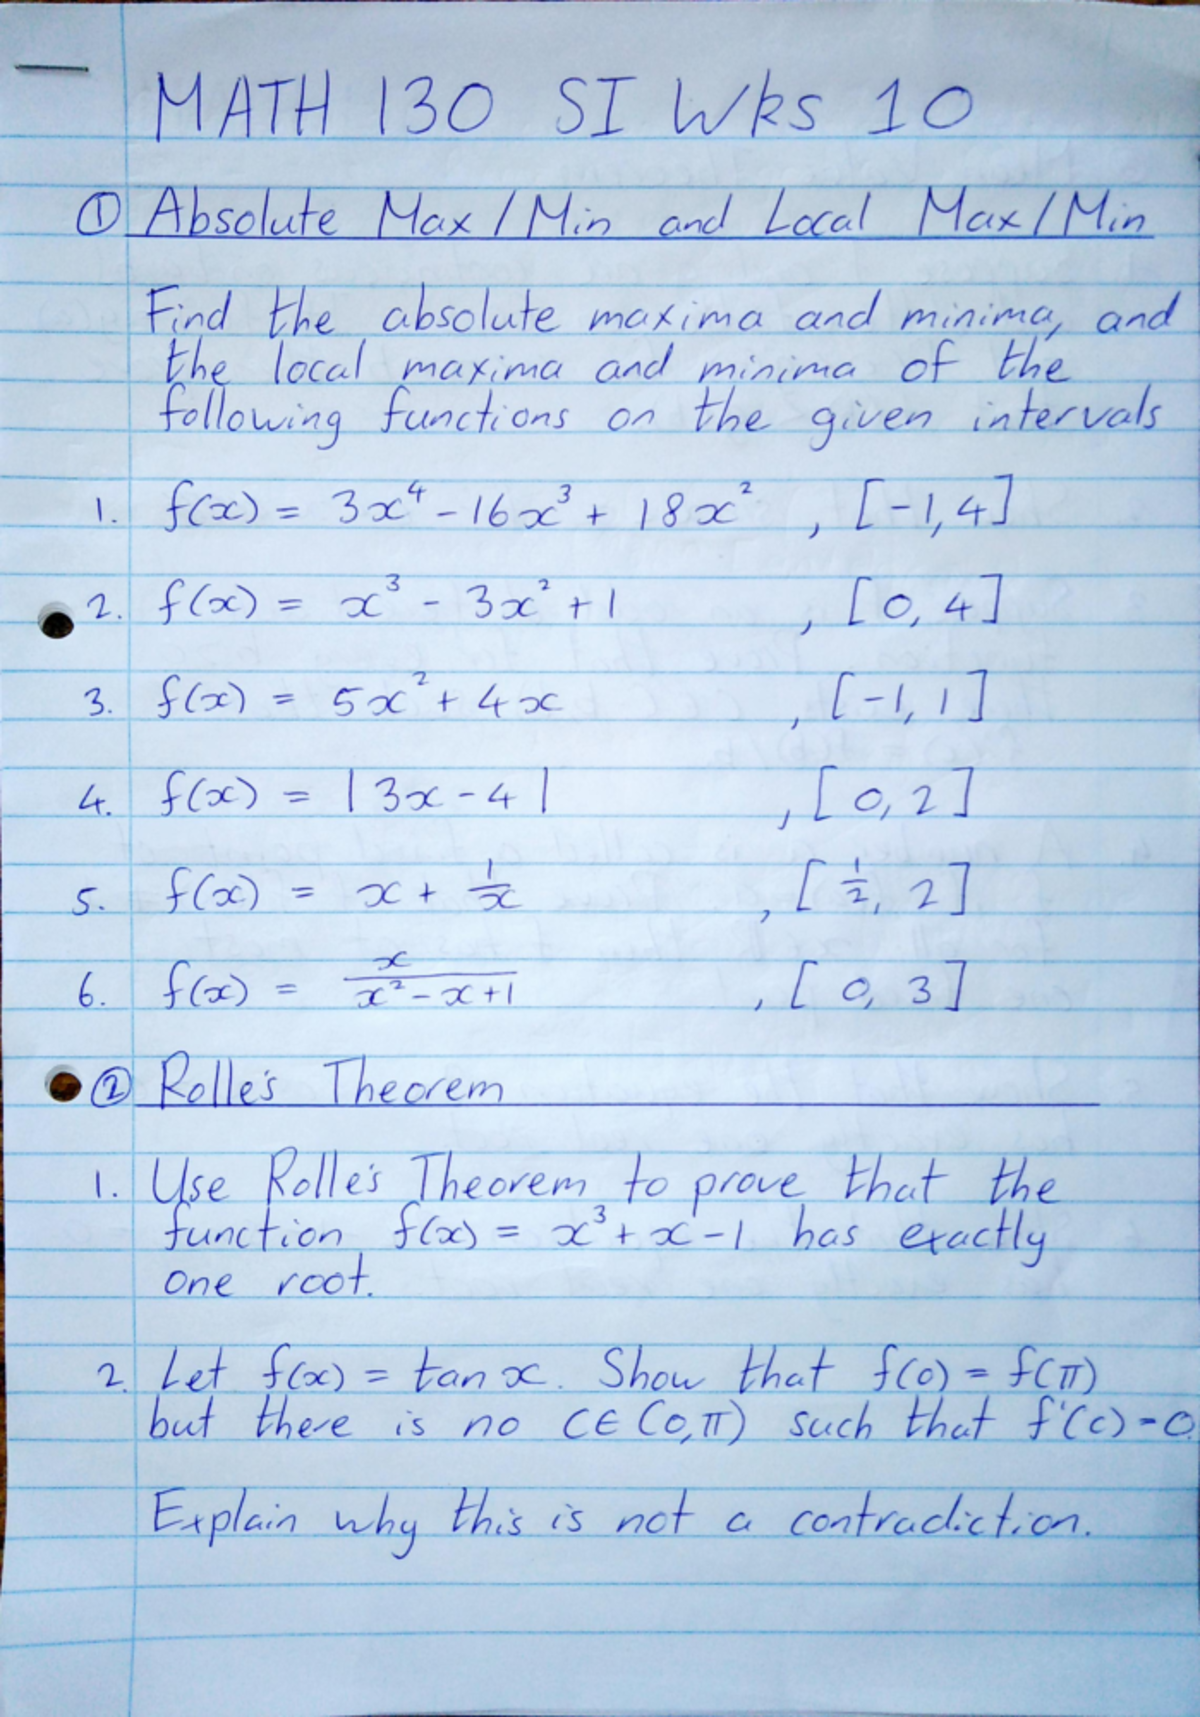 MATH 130 SI Wks 10
① Absolute Max/Min and Local Max/Min
Find the absolute maxima and minima, and
the local maxima and minima of the
following functions on the given intervals
1. f(x) = 3x⁴ - 16x³ + 18x² , [-1,4]
2. f(x) = x³ - 3x² + 1 , [0, 4]
3. f(x) = 5x² + 4x , [-1, 1]
4. f(x) = |3x - 4| , [0, 2]
5. f(x) = x + 1/x , [1/2, 2]
6. f(x) = x/(x² - x + 1) , [0, 3]
② Rolle's Theorem
1. Use Rolle's Theorem to prove that the
function f(x) = x³ + x - 1 has exactly
one root.
2. Let f(x) = tan x. Show that f(0) = f(π)
but there is no C∈(0,π) such that f'(c)=0.
Explain why this is not a contradiction.